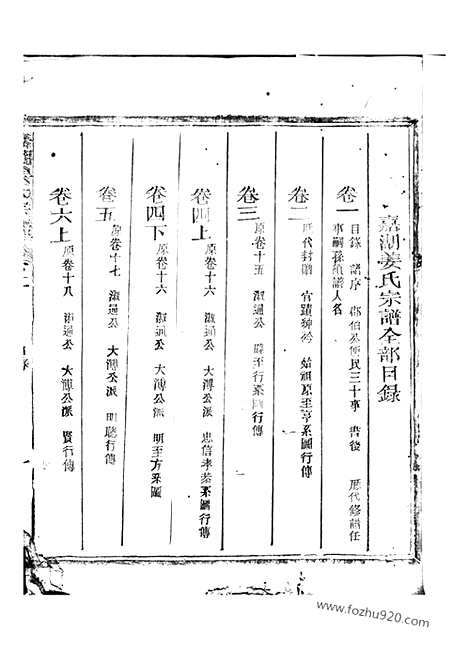 嘉湖姜氏宗譜全部目錄
卷一 目錄 譜序 郡伯公便民三十事 書後 歷代修譜任
事嗣孫領譜人名
卷二 歷代封贈 官蹟 始祖原至亨系圖行傳
卷三 原卷十五 淑通公 系圖行傳
卷四上 原卷十六 淑通公 大溥公派 忠信孝系圖行傳
卷四下 原卷十六 淑通公 大溥公派 明至方系圖
卷五 原卷十七 淑通公 大溥公派 明聰行傳
卷六上 原卷十八 淑通公 大溥公派 賢行傳
www.fozhu920.com